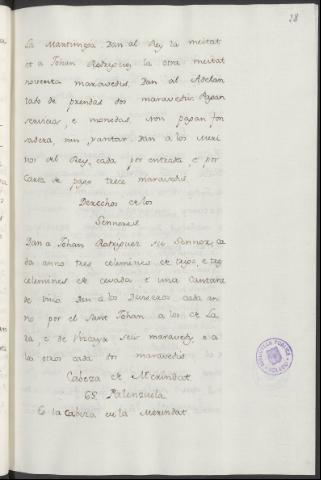 28
La Martiniega. Dan al Rey la meitat
et a Johan Rodriguez la otra meitat
noventa maravedis. Dan al Adelan
tado de prendas dos maravedis. Pagan
servicios, e monedas. Non pagan fon
sadera, nin yantar. Dan a los Meri
nos del Rey, cada por entrada e por
Carta de pago trece maravedis.
Derechos de los
Sennores
Dan a Johan Rodriguez su Sennor, ca
da anno tres celemines de trigo, e tres
celemines de cevada e una Cantara
de vino. Den a los Divseros cada an
no por el Sant Johan a los de La
ra e de Vizcaya seis maravedis, e a
los otros cada dos maravedis.
Cabeza de Merindat
68. Palenzuela
Es la Cabeza en la Merindat
BIBLIOTECA PÚBLICA
TOLEDO